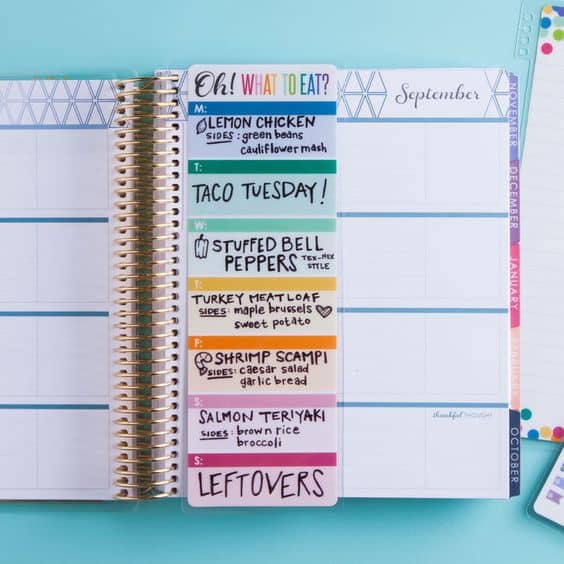 Oh! WHAT TO EAT?
September
M:
LEMON CHICKEN
SIDES: green beans
cauliflower mash
T:
TACO TUESDAY!
W:
STUFFED BELL
PEPPERS TEX-MEX
STYLE
T:
TURKEY MEATLOAF
SIDES: maple brussels
sweet potato
F:
SHRIMP SCAMPI
SIDES: caesar salad
garlic bread
S:
SALMON TERIYAKI
SIDES: brown rice
broccoli
S:
LEFTOVERS
thankful THOUGHT
NOVEMBER
DECEMBER
JANUARY
OCTOBER